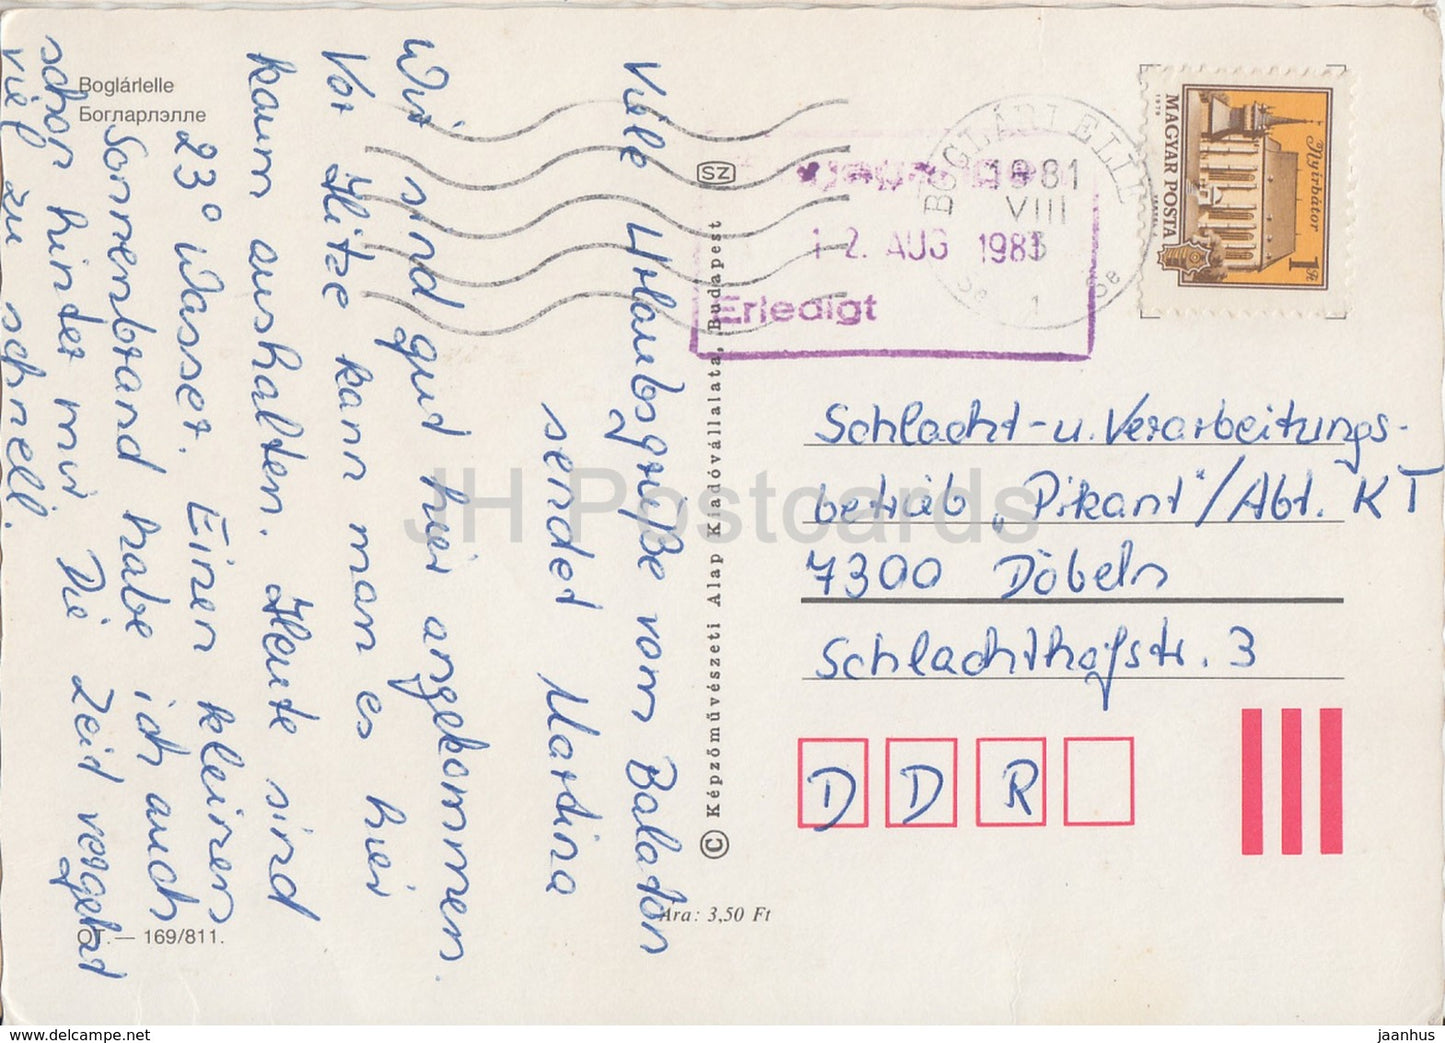 Boglárlelle
Богларлэлле
Viele Urlaubsgrüße vom Balaton
sendet Martina
Wir sind gud hier angekommen.
Vor Hitze kann man es hier
kaum aushalten. Heute sind
23° Wasser. Einen kleinen
Sonnenbrand habe ich auch
schon hinter mir. Die Zeid vergehd
viel zu schnell.
ОТ. — 169/811.
Ára: 3,50 Ft
SZ
© Képzőművészeti Alap Kiadóvállalata, Budapest
12. AUG 1981
Erledigt
BOGLÁRLELLE
1981
VIII
1
1979
MAGYAR POSTA
Nyírbátor
1 Ft
Schlacht-u. Verarbeitungs-
betrieb "Pikant"/Abt. KT
7300 Döbeln
Schlachthofstr. 3
D D R
JH Postcards
www.delcampe.net
jaanhus